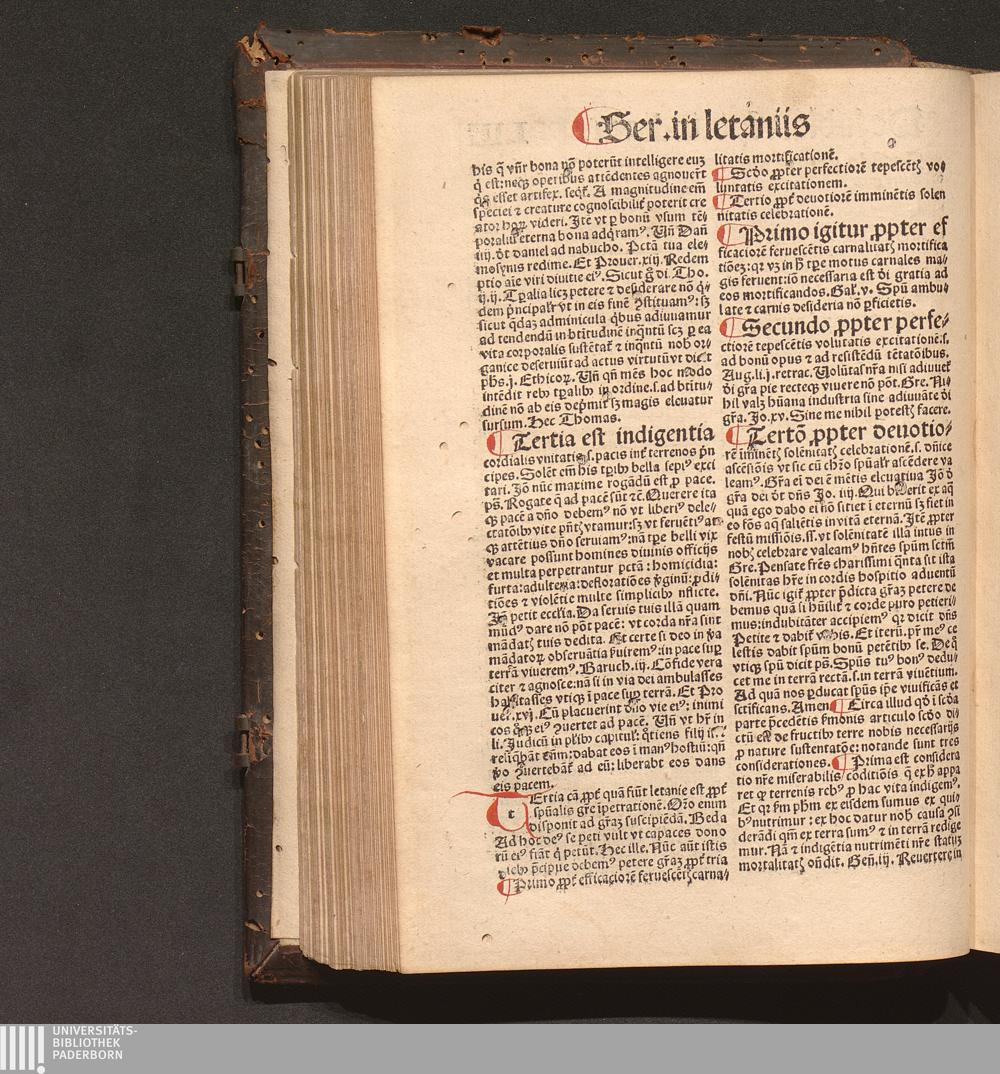 Ser. in letaniis
his q̄ vn̄r bona nō poterūt intelligere euʒ
q̄ est: neqʒ operibus attēdentes agnouerūt
q̇s esset artifex. seqt̄. A magnitudine em̄
speciei ⁊ creature cognoscibilit̄ poterit cre
ator hoꝝ videri. Itē vt ꝑ bonū vsum tē⸗
poraliū eterna bona adq̇ramꝰ. Vn̄ Dan̄
iiij. dt̄ daniel ad nabucho. Pctā tua ele⸗
mosynis redime. Et Prouer. xiij. Redem
ptio aīe viri diuitie eiꝰ. Sicut g̊ di. Tho.
ij. ij. Tꝑalia licʒ petere ⁊ desiderare nō q̇⸗
dem p̄ncipalr̄ vt in eis finē ꝯstituamꝰ: sʒ
sicut q̇daʒ adminicula q̇bus adiuuamur
ad tendendū in btītudinē inq̄ntū scʒ ꝑ ea
vita corporalis sustētat̄ ⁊ inq̄ntū nob̄ or⸗
ganice deseruiūt ad actus virtutū vt dicit
ph̄s. j. Ethicoꝝ. Vn̄ qn̄ mēs hoc modo
intēdit rebꝰ tꝑalibꝰ in ordine. s. ad btītu⸗
dinē nō ab eis dep̄mit̄ sʒ magis eleuatur
sursum. Hec Thomas.
Tertia est indigentia
cordialis vnitatis. s. pacis int̄ terrenos p̄n
cipes. Solēt em̄ his tꝑibꝰ bella sepiꝰ exci
tari. Iō nūc maxime rogādū est ꝓ pace.
pš. Rogate q̄ ad pacē sūt ⁊c̄. Querere ita
qʒ pacē a dn̄o debemꝰ nō vt liberiꝰ dele⸗
ctatōibꝰ vite pn̄tꝭ vtamur: sʒ vt feruētiꝰ at
qʒ attētius dn̄o seruiamꝰ: nā tꝑe belli vix
vacare possunt homines diuinis officijs
et multa perpetrantur pctā: homicidia:
furta: adulteria: defloratiōes v̓ginū: ꝓdi⸗
tiōes ⁊ violētie multe simplicibꝰ inflicte.
Iō petit eccl̄ia. Da seruis tuis illā quam
mūdꝰ dare nō pōt pacē: vt corda nr̄a sint
mādatꝭ tuis dedita. Et certe si deo in v̓a
mādatoꝝ obseruātia ẜuiremꝰ: in pace suꝑ
terrā viueremꝰ. Baruch. iij. Cōfide vera
citer ⁊ agnosce: nā si in via dei ambulasses
habitasses vtiqʒ ī pace suꝑ terrā. Et Pro
uer. xvj. Cū placuerint dn̄o vie eiꝰ: inimi
cos q̊qʒ eiꝰ ꝯuertet ad pacē. Vn̄ vt hr̄ in
li. Judicū in pl̄ibꝰ capitul̄: q̊tiens filij isr̄l̄
relīq̄bāt deū: dabat eos ī manꝰ hostiū: qn̄
v̓o ꝯuertebāt̄ ad eū: liberabt̄ eos dans
eis pacem.
Tertia cā ꝓpt̄ quā fiūt letanie est ꝓpt̄
spūalis grē īpetrationē. Orō enim
disponit ad gr̄aʒ suscipiēdā. Beda
Ad hoc deꝰ se peti vult vt capaces dono
rū eiꝰ fiāt q̇ petūt. Hec ille. Nūc aūt istis
diebꝰ p̄cipue debemꝰ petere gr̄aʒ ꝓpt̄ tria
Primo ꝓpt̄ efficaciorē feruescētꝭ carna⸗
litatis mortificationē.
Scd̄o ꝓpter perfectiorē tepescētꝭ vo⸗
luntatis excitationem.
Tertio ꝓpt̄ deuotiorē imminētis solen
nitatis celebrationē.
Primo igitur ꝓpter ef
ficaciorē feruescētis carnalitatꝭ mortifica
tiōeʒ: qr̄ vʒ in h̄ tꝑe motus carnales ma⸗
gis feruent: iō necessaria est di gratia ad
eos mortificandos. Gal̄. v. Spū ambu⸗
late ⁊ carnis desideria nō ꝑficietis.
Secundo ꝓpter perfe⸗
ctiorē tepescētis volūtatis excitationē. s.
ad bonū opus ⁊ ad resistēdū tētatōibus.
Aug. li. j. retrac. Volūtas nr̄a nisi adiuuet̄
di gr̄a pie recteqʒ viuere nō pōt. Gre. Ni⸗
hil valʒ hūana industria sine adiuuāte di
gr̄a. Jo. xv. Sine me nihil potestꝭ facere.
Tertō ꝓpter deuotio⸗
rē imīnētꝭ solēnitatꝭ celebrationē. s. dn̄ice
ascēsiōis vt sic cū chr̄o spūalr̄ ascēdere va
leamꝰ. Gr̄a ei dei ē mētis eleuatiua Iō d̄
gr̄a dei dt̄ dn̄s Jo. iiij. Qui biberit ex aq̄
quā ego dabo ei nō sitiet ī eternū sʒ fiet in
eo fōs aq̄ saliētis in vitā eternā. Itē ꝓpter
festū missiōis. ss. vt solēnitatē illā intus in
nobꝭ celebrare valeamꝰ hn̄tes spūm sctm̄
Gre. Pensate frēs charissimi q̄nta sit ista
solēnitas hr̄e in cordis hospitio aduentū
dn̄i. Nūc igit̄ ꝓpter p̄dicta gr̄aʒ petere de
bemus quā si hūilit̄ ⁊ corde puro petieri⸗
mus: indubitāter accipiemꝰ qr̄ dicit dn̄s
Petite ⁊ dabit̄ vobis. Et iterū. pr̄ meꝰ ce
lestis dabit spūm bonū petētibꝰ se. De q̊
vtiqʒ spū dicit pš. Spūs tuꝰ bonꝰ dedu⸗
cet me in terrā rectā. s. in terrā viuētium.
Ad quā nos ꝑducat spūs ip̄e viuificās et
sctificans. Amen Circa illud qd̄ ī scd̄a
parte p̄cedētis ẜmonis articulo scd̄o di⸗
ctū est de fructibꝰ terre nobis necessarijs
ꝓ nature sustentatōe: notande sunt tres
considerationes. Prima est considera
tio nr̄e miserabilis cōditiōis q̄ ex h̄ appa
ret qꝛ terrenis rebꝰ ꝓ hac vita indigemꝰ.
Et qr̄ ẜm phm̄ ex eisdem sumus ex qui⸗
bꝰ nutrimur: ex hoc datur nob̄ causa ꝯsi
derādi qm̄ ex terra sumꝰ ⁊ in terrā redige
mur. Nā ⁊ indigētia nutrimēti nr̄e statūʒ
mortalitatꝭ on̄dit. Gen̄. iij. Reuerteris in
UNIVERSITÄTS-
BIBLIOTHEK
PADERBORN